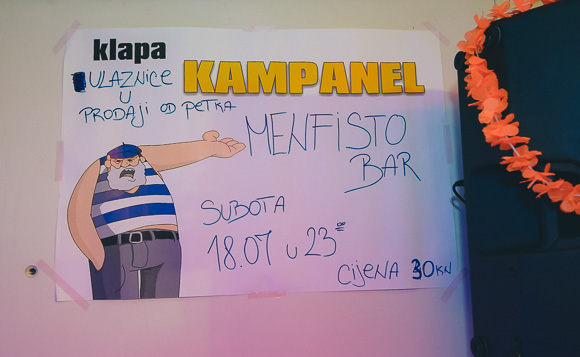 klapa
KAMPANEL
ULAZNICE
U
PRODAJI OD PETKA
MENFISTO
BAR
SUBOTA
18.07 u 23⁰⁰
CIJENA 30KN